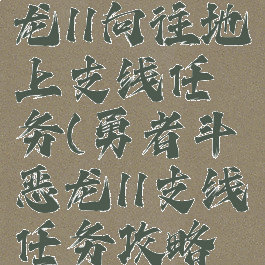 龙11向往地
上支线任
务(勇者斗
恶龙11支线
任务攻略